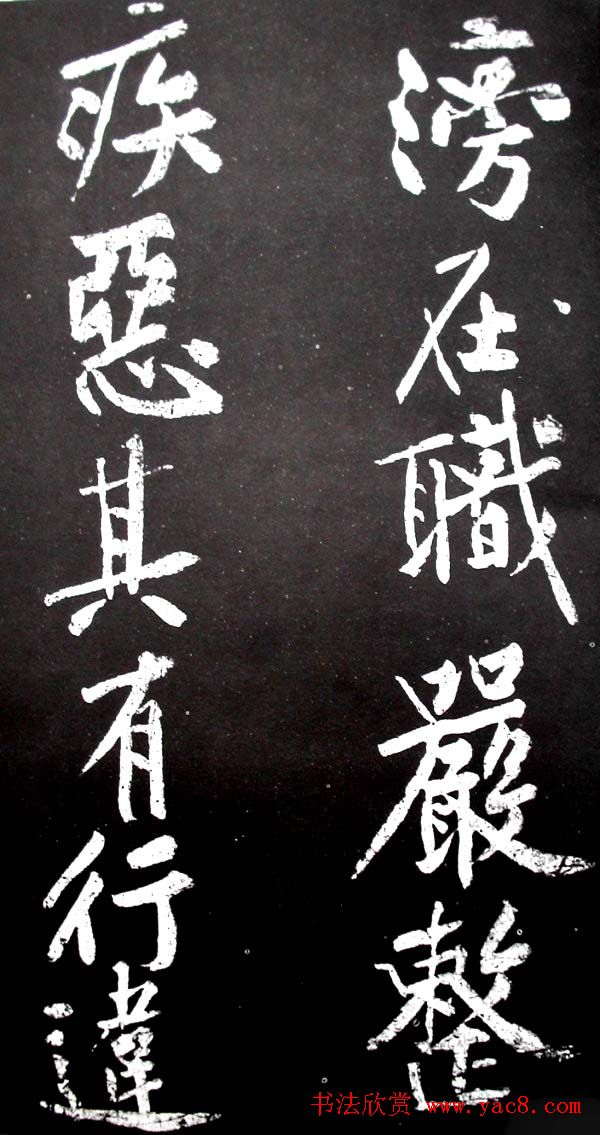 滂在職嚴整
疾惡其有行違
书法欣赏 www.yac8.com